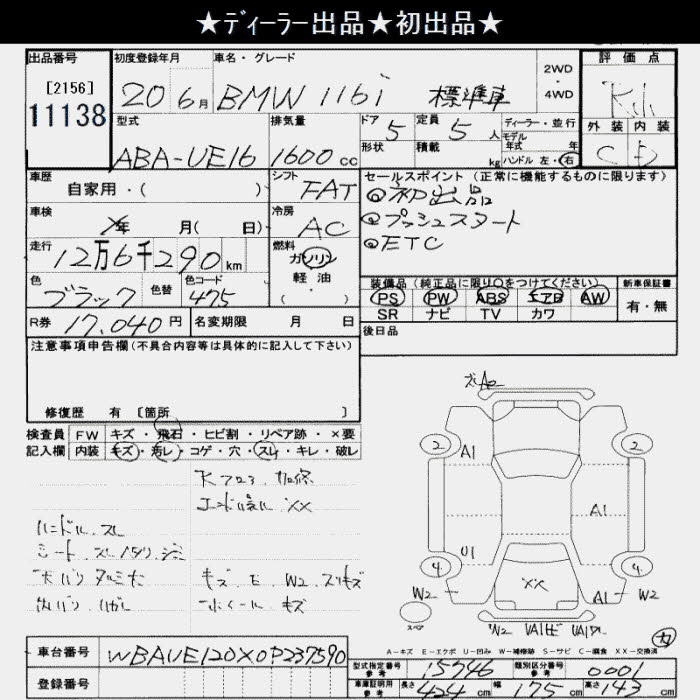 ★ディーラー出品★初出品★
出品番号
[2156]
11138
初度登録年月
20 6月
車名・グレード
BMW 116i 標準車
2WD
・
4WD
評価点
外装 内装
C D
型式
ABA-UE16
排気量
1600cc
ドア 5
形状
定員 5人
積載 kg
ディーラー・並行
モデル年式 年
ハンドル 左・右
車歴
自家用・( )
シフト
FAT
車検
年 月( 日)
冷房
AC
走行
12万6千290km
燃料
ガソリン
軽油
( ・ )
色
ブラック
色替
色コード
475
R券 17,040円
名変期限 月 日
セールスポイント(正常に機能するものに限ります)
◎初出品
◎プッシュスタート
◎ETC
装備品(純正品に限り○をつけてください)
PS PW ABS エアB AW
SR ナビ TV カワ
新車保証書
有・無
後日品
注意事項申告欄(不具合内容等は具体的に記入して下さい)
修復歴 有 [箇所 ]
検査員記入欄
FW キズ・飛石・ヒビ割・リペア跡・×要
内装 キズ・汚レ・コゲ・穴・スレ・キレ・破レ
ハンドル.スレ
キズ.E.W2.スリキズ
ホイール.キズ
A1
2
2
A1
U1
A1
4
4
W2
××
A1
W2
スペア
W2
A-キズ E-エクボ U-凹み W-補修跡 S-サビ C-腐食 XX-交換済
車台番号
WBAUE120X0P237590
登録番号
型式指定番号
参考
15746
類別区分番号
参考
0001
車庫証明用
参考
長さ 424cm
幅 175cm
高さ 143cm